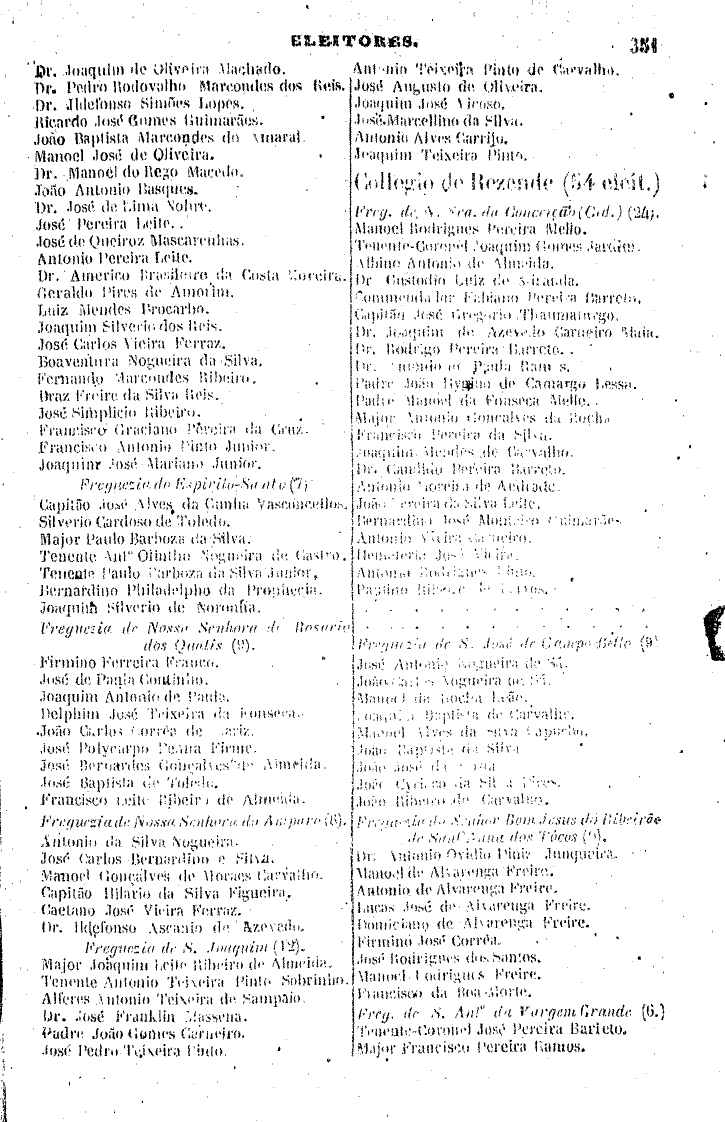 ELEITORES. 351
Dr. Joaquim de Oliveira Machado.
Dr. Pedro Rodovalho Marcondes dos Reis.
Dr. Ildefonso Simões Lopes.
Ricardo José Gomes Guimarães.
João Baptista Marcondes do Amaral.
Manoel José de Oliveira.
Dr. Manoel do Rego Macedo.
João Antonio Basques.
Dr. José de Lima Nobre.
José Pereira Leite.
José de Queiroz Mascarenhas.
Antonio Pereira Leite.
Dr. Americo Brasileiro da Costa Moreira.
Geraldo Pires de Amorim.
Luiz Mendes Procarho.
Joaquim Silverio dos Reis.
José Carlos Vieira Ferraz.
Boaventura Nogueira da Silva.
Fernando Marcondes Ribeiro.
Braz Freire da Silva Reis.
José Simplicio Ribeiro.
Francisco Graciano Pereira da Cruz.
Francisco Antonio Pinto Junior.
Joaquim José Mariano Junior.
Freguezia de Espirito-Santo (7)
Capitão José Alves da Cunha Vasconcellos.
Silverio Cardoso de Toledo.
Major Paulo Barboza da Silva.
Tenente Antº Olintho Nogueira de Castro.
Tenente Paulo Barboza da Silva Junior.
Bernardino Philadelpho da Prophecia.
Joaquim Silverio de Noronha.
Freguezia de Nossa Senhora do Rosario
dos Quatis (9).
Firmino Ferreira Franco.
José de Paula Coutinho.
Joaquim Antonio de Paula.
Delphim José Teixeira da Fonseca.
João Carlos Corrêa de
José Polycarpo Penna Firme.
José Bernardes Gonçalves de Almeida.
José Baptista de Toledo.
Francisco Leite Ribeiro de Almeida.
Freguezia de Nossa Senhora do Amparo (6).
Antonio da Silva Nogueira.
José Carlos Bernardino e Silva.
Manoel Gonçalves de Moraes Carvalho.
Capitão Hilario da Silva Figueira.
Caetano José Vieira Ferraz.
Dr. Ildefonso Ascanio de Azevedo.
Freguezia de S. Joaquim (12).
Major Joaquim Leite Ribeiro de Almeida.
Tenente Antonio Teixeira Pinto Sobrinho.
Alferes Antonio Teixeira de Sampaio.
Dr. José Franklin Massena.
Padre João Gomes Carneiro.
José Pedro Teixeira Pinto.
Antonio Teixeira Pinto de Carvalho.
José Augusto de Oliveira.
Joaquim José Viçoso.
José Marcellino da Silva.
Antonio Alves Carrijo.
Joaquim Teixeira Pinto.
Collegio de Rezende (54 eleit.)
Freg. de N. Sra. da Conceição (Cid.) (24).
Manoel Rodrigues Pereira Mello.
Tenente-Coronel Joaquim Gomes Jardim.
Albino Antonio de Almeida.
Dr. Custodio Luiz de Miranda.
Commendador Fabiano Pereira Barreto.
Capitão José Gregorio Thaumaturgo.
Dr. Joaquim de Azevedo Carneiro Maia.
Dr. Rodrigo Pereira Barreto.
Dr. Antonio de Paula Ramos.
Padre João de Camargo Lessa.
Padre Manoel da Fonseca Mello.
Major Antonio Gonçalves da Rocha
Francisco Pereira da Silva.
Joaquim Mendes de Carvalho.
Dr. Candido Pereira Barreto.
Antonio Moreira de Andrade.
João Pereira da Silva Leite.
Bernardino José Monteiro Guimarães.
Antonio Vieira Carneiro.
Hemeterio José Vieira.
Antonio Rodrigues Pinto.
Paulino Ribeiro de
. . . . . . . .
Freguezia de S. José de Campo Bello (9)
José Antonio Nogueira de Sá.
João Carlos Nogueira de Sá.
Manoel da Rocha Leão.
Joaquim Baptista de Carvalho.
Manoel Alves da Silva Capucho.
João Baptista da Silva
João José da
João Cyrino da Silva Pires.
João Ribeiro de Carvalho.
Freguezia do Senhor Bom Jesus do Ribeirão
de Sant'Anna dos Tócos (9).
Dr. Antonio Ovidio Diniz Junqueira.
Manoel de Alvarenga Freire.
Antonio de Alvarenga Freire.
Lucas José de Alvarenga Freire.
Domiciano de Alvarenga Freire.
Firmino José Corrêa.
José Rodrigues dos Santos.
Manoel Rodrigues Freire.
Francisco da Boa-Morte.
Freg. de S. Antº da Vargem Grande (6.)
Tenente-Coronel José Pereira Barreto.
Major Francisco Pereira Ramos.